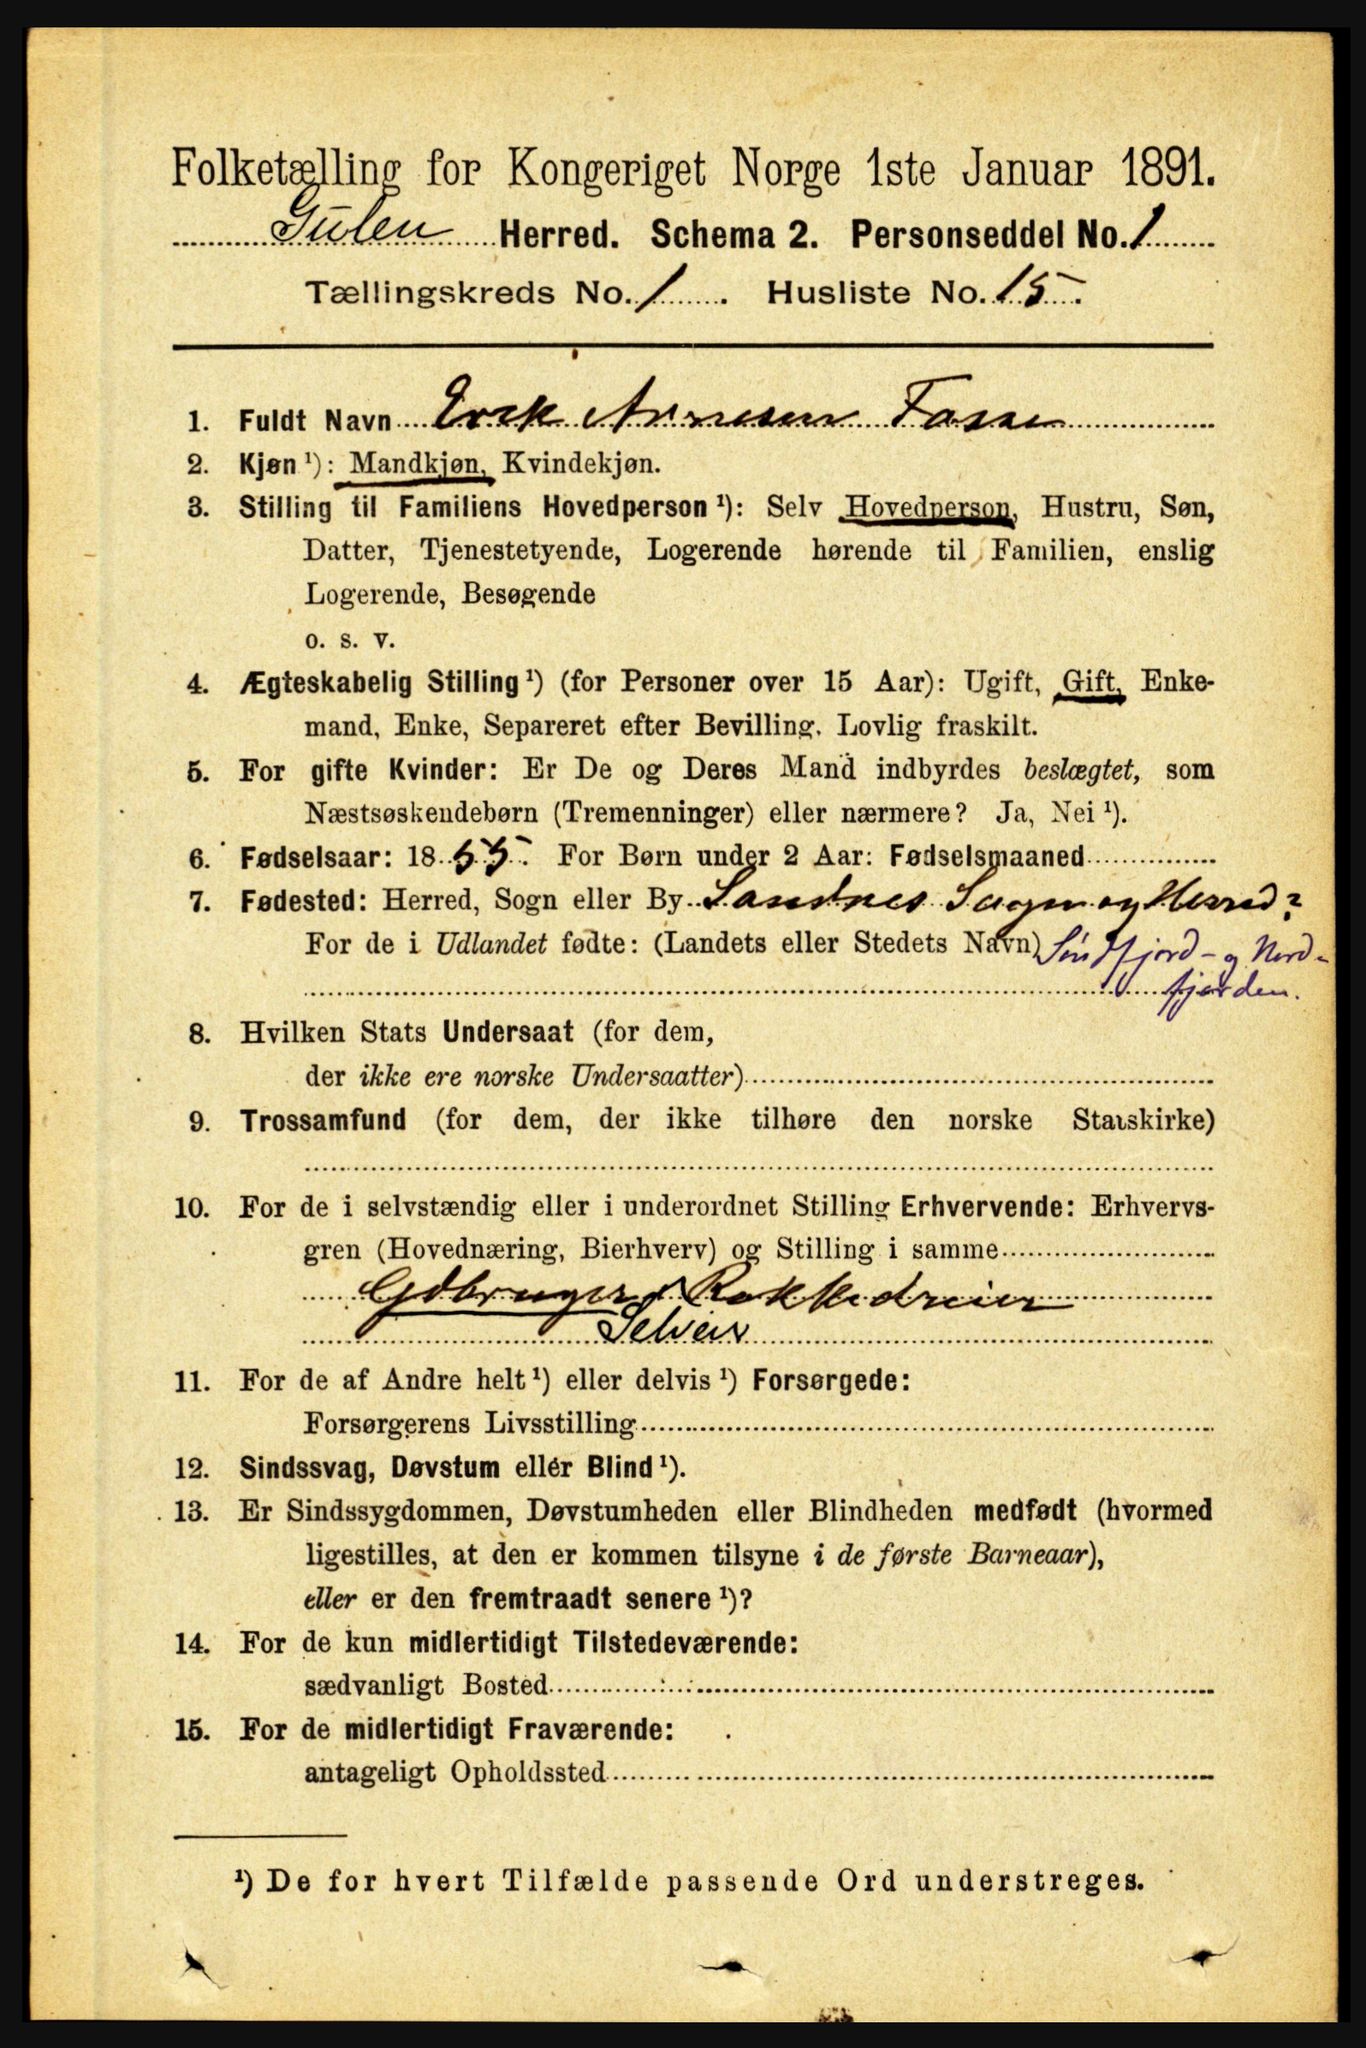 Folketælling for Kongeriget Norge 1ste Januar 1891.
Gulen Herred. Schema 2. Personseddel No. 1
Tællingskreds No. 1. Husliste No. 15.
1. Fuldt Navn Erik Arnesen Fosse
2. Kjøn ¹): Mandkjøn, Kvindekjøn.
3. Stilling til Familiens Hovedperson ¹): Selv Hovedperson, Hustru, Søn,
Datter, Tjenestetyende, Logerende hørende til Familien, enslig
Logerende, Besøgende
o. s. v.
4. Ægteskabelig Stilling ¹) (for Personer over 15 Aar): Ugift, Gift, Enke-
mand, Enke, Separeret efter Bevilling. Lovlig fraskilt.
5. For gifte Kvinder: Er De og Deres Mand indbyrdes beslægtet, som
Næstsøskendebørn (Tremenninger) eller nærmere? Ja, Nei ¹).
6. Fødselsaar: 1855. For Børn under 2 Aar: Fødselsmaaned
7. Fødested: Herred, Sogn eller By Sandnes Sogn og Herred?
For de i Udlandet fødte: (Landets eller Stedets Navn) Søndfjord- og Nord-
fjorden.
8. Hvilken Stats Undersaat (for dem,
der ikke ere norske Undersaatter)
9. Trossamfund (for dem, der ikke tilhøre den norske Statskirke)
10. For de i selvstændig eller i underordnet Stilling Erhvervende: Erhvervs-
gren (Hovednæring, Bierhverv) og Stilling i samme
Gdbruger Rokkedreier
Selveier
11. For de af Andre helt ¹) eller delvis ¹) Forsørgede:
Forsørgerens Livsstilling
12. Sindssvag, Døvstum eller Blind ¹).
13. Er Sindssygdommen, Døvstumheden eller Blindheden medfødt (hvormed
ligestilles, at den er kommen tilsyne i de første Barneaar),
eller er den fremtraadt senere ¹)?
14. For de kun midlertidigt Tilstedeværende:
sædvanligt Bosted
15. For de midlertidigt Fraværende:
antageligt Opholdssted
¹) De for hvert Tilfælde passende Ord understreges.